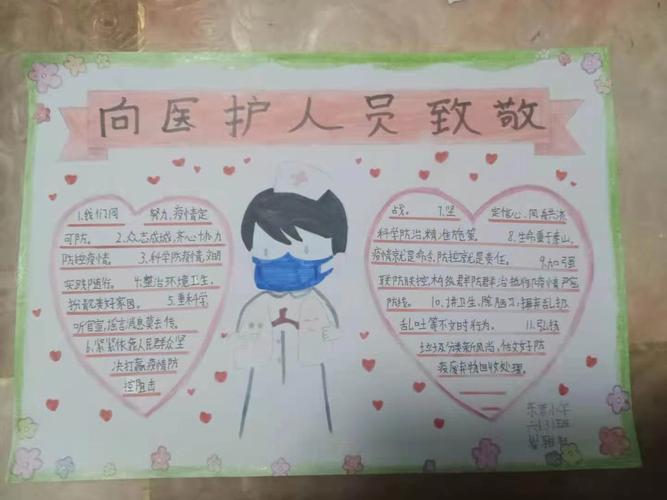 向医护人员致敬
1.我们同 努力,疫情定
可防。 2.众志成城,齐心协力
防控疫情。 3.科学防疫情,文明
实践随行。 4.整治环境卫生,
扮靓美好家园。 5.重科学
听官宣,谣言消息莫去传。
6.紧紧依靠人民群众坚
决打赢疫情防
控阻击
战。 7.坚 定信心、同舟共济
科学防治,精准施策。 8.生命重于泰山,
疫情就是命令,防控就是责任。 9.加强
联防联控,构筑群防群治抵御疫情严密
防线。 10.讲卫生,除陋习,摒弃乱扔
乱吐等不文明行为。 11.弘扬
垃圾分类新风尚,
疫废弃物回收处理。
东 小学
六(3)班